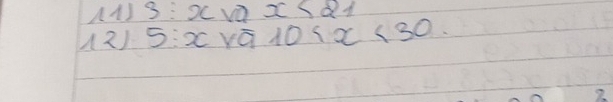 11) 3 : x và x < 21
12) 5 : x và 10 < x < 30.